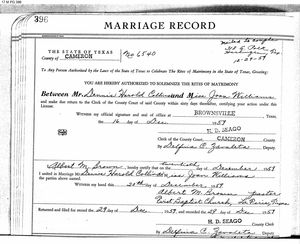 17 M PG 396
396
MARRIAGE RECORD
THE STATE OF TEXAS
County of CAMERON
No 6840
12-29-59
To Any Person Authorized by the Laws of the State of Texas to Celebrate The Rites of Matrimony in the State of Texas, Greeting:
YOU ARE HEREBY AUTHORIZED TO SOLEMNIZE THE RITES OF MATRIMONY
Between Mr. Dennis Harold and Miss Joan Williams
and make due return to the Clerk of the County Court of said County within sixty days thereafter, certifying your action under this License.
Witness my official signature and seal of office at BROWNSVILLE
the 16 day of Dec 1959
H. D. SEAGO
Clerk of County Court CAMERON County
By Delfina C.
I, Albert M. Brown, hereby certify that on the twentieth
day of December 1959
united in Marriage Dennis Harold and Miss Joan Williams
the parties above named.
Witness my hand this 20th day of December 1959
Albert M. Brown pastor
First Baptist Church, La Feria, Texas
Returned and filed for record the 29 day of Dec 1959 and recorded the day of Dec 1959
H. D. SEAGO
County Clerk
By Delfina C.